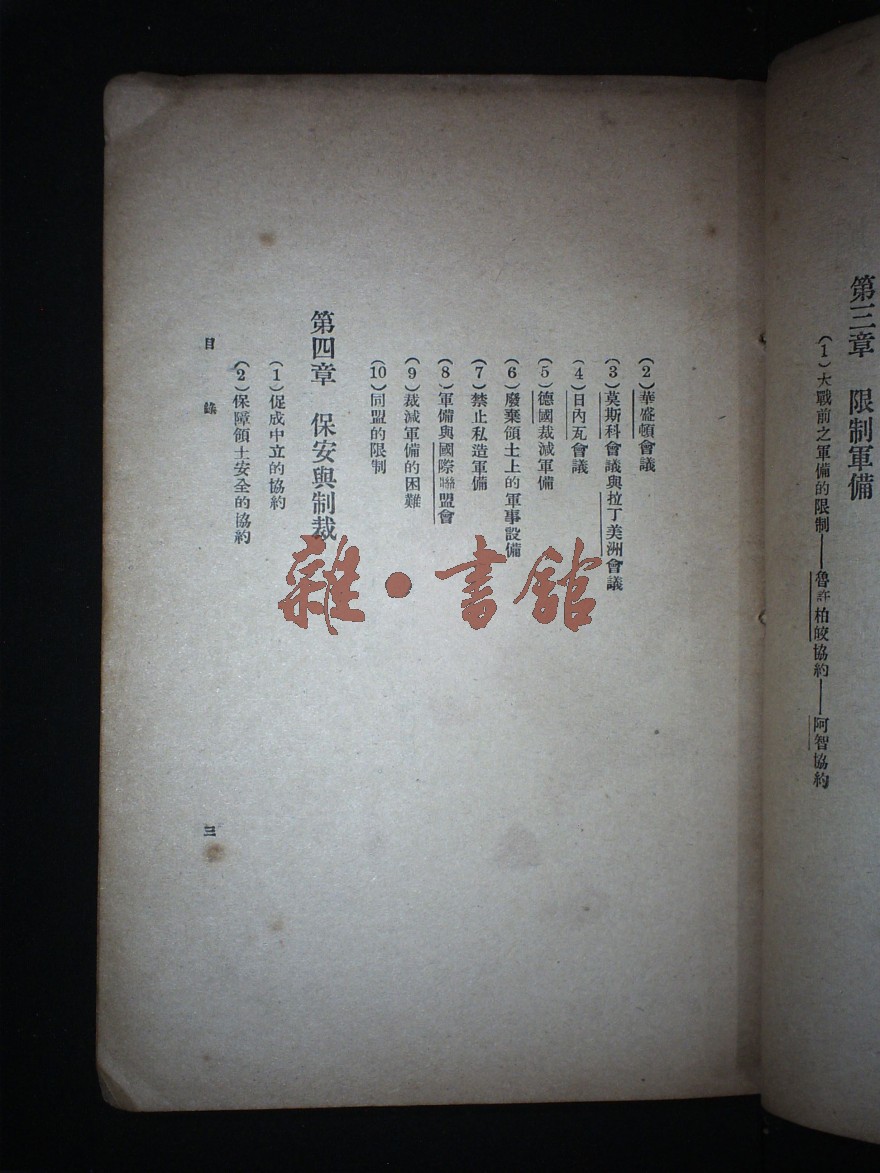 第三章　限制軍備
(1)大戰前之軍備的限制——魯許柏皎協約——阿智協約
(2)華盛頓會議
(3)莫斯科會議與拉丁美洲會議
(4)日內瓦會議
(5)德國裁減軍備
(6)廢棄領土上的軍事設備
(7)禁止私造軍備
(8)軍備與國際聯盟會
(9)裁減軍備的困難
(10)同盟的限制
第四章　保安與制裁
(1)促成中立的協約
(2)保障領土安全的協約
目錄
三
雜・書館